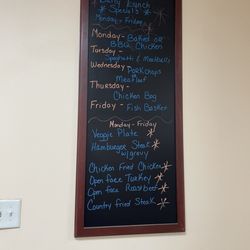 Daily Lunch
Specials
Monday - Friday
Monday - Baked or
BBQ Chicken
Tuesday -
Spaghetti & Meatballs
Wednesday
Pork chops
Meatloaf
Thursday -
Chicken Bog
Friday - Fish Basket
Monday - Friday
Veggie Plate
Hamburger Steak
w/gravy
Chicken Fried Chicken
Open face Turkey
Open face Roast Beef
Country Fried Steak